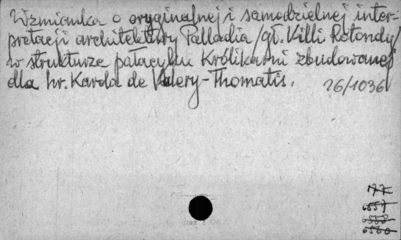 Wzmianka o oryginalnej i samodzielnej inter-
pretacji architektury Palladia /gł. Villi Rotondy/
w strukturze pałacyku Królikarni zbudowanej
dla hr. Karola de Valery-Thomatis.
26/1036
MK
6557
6558
6560